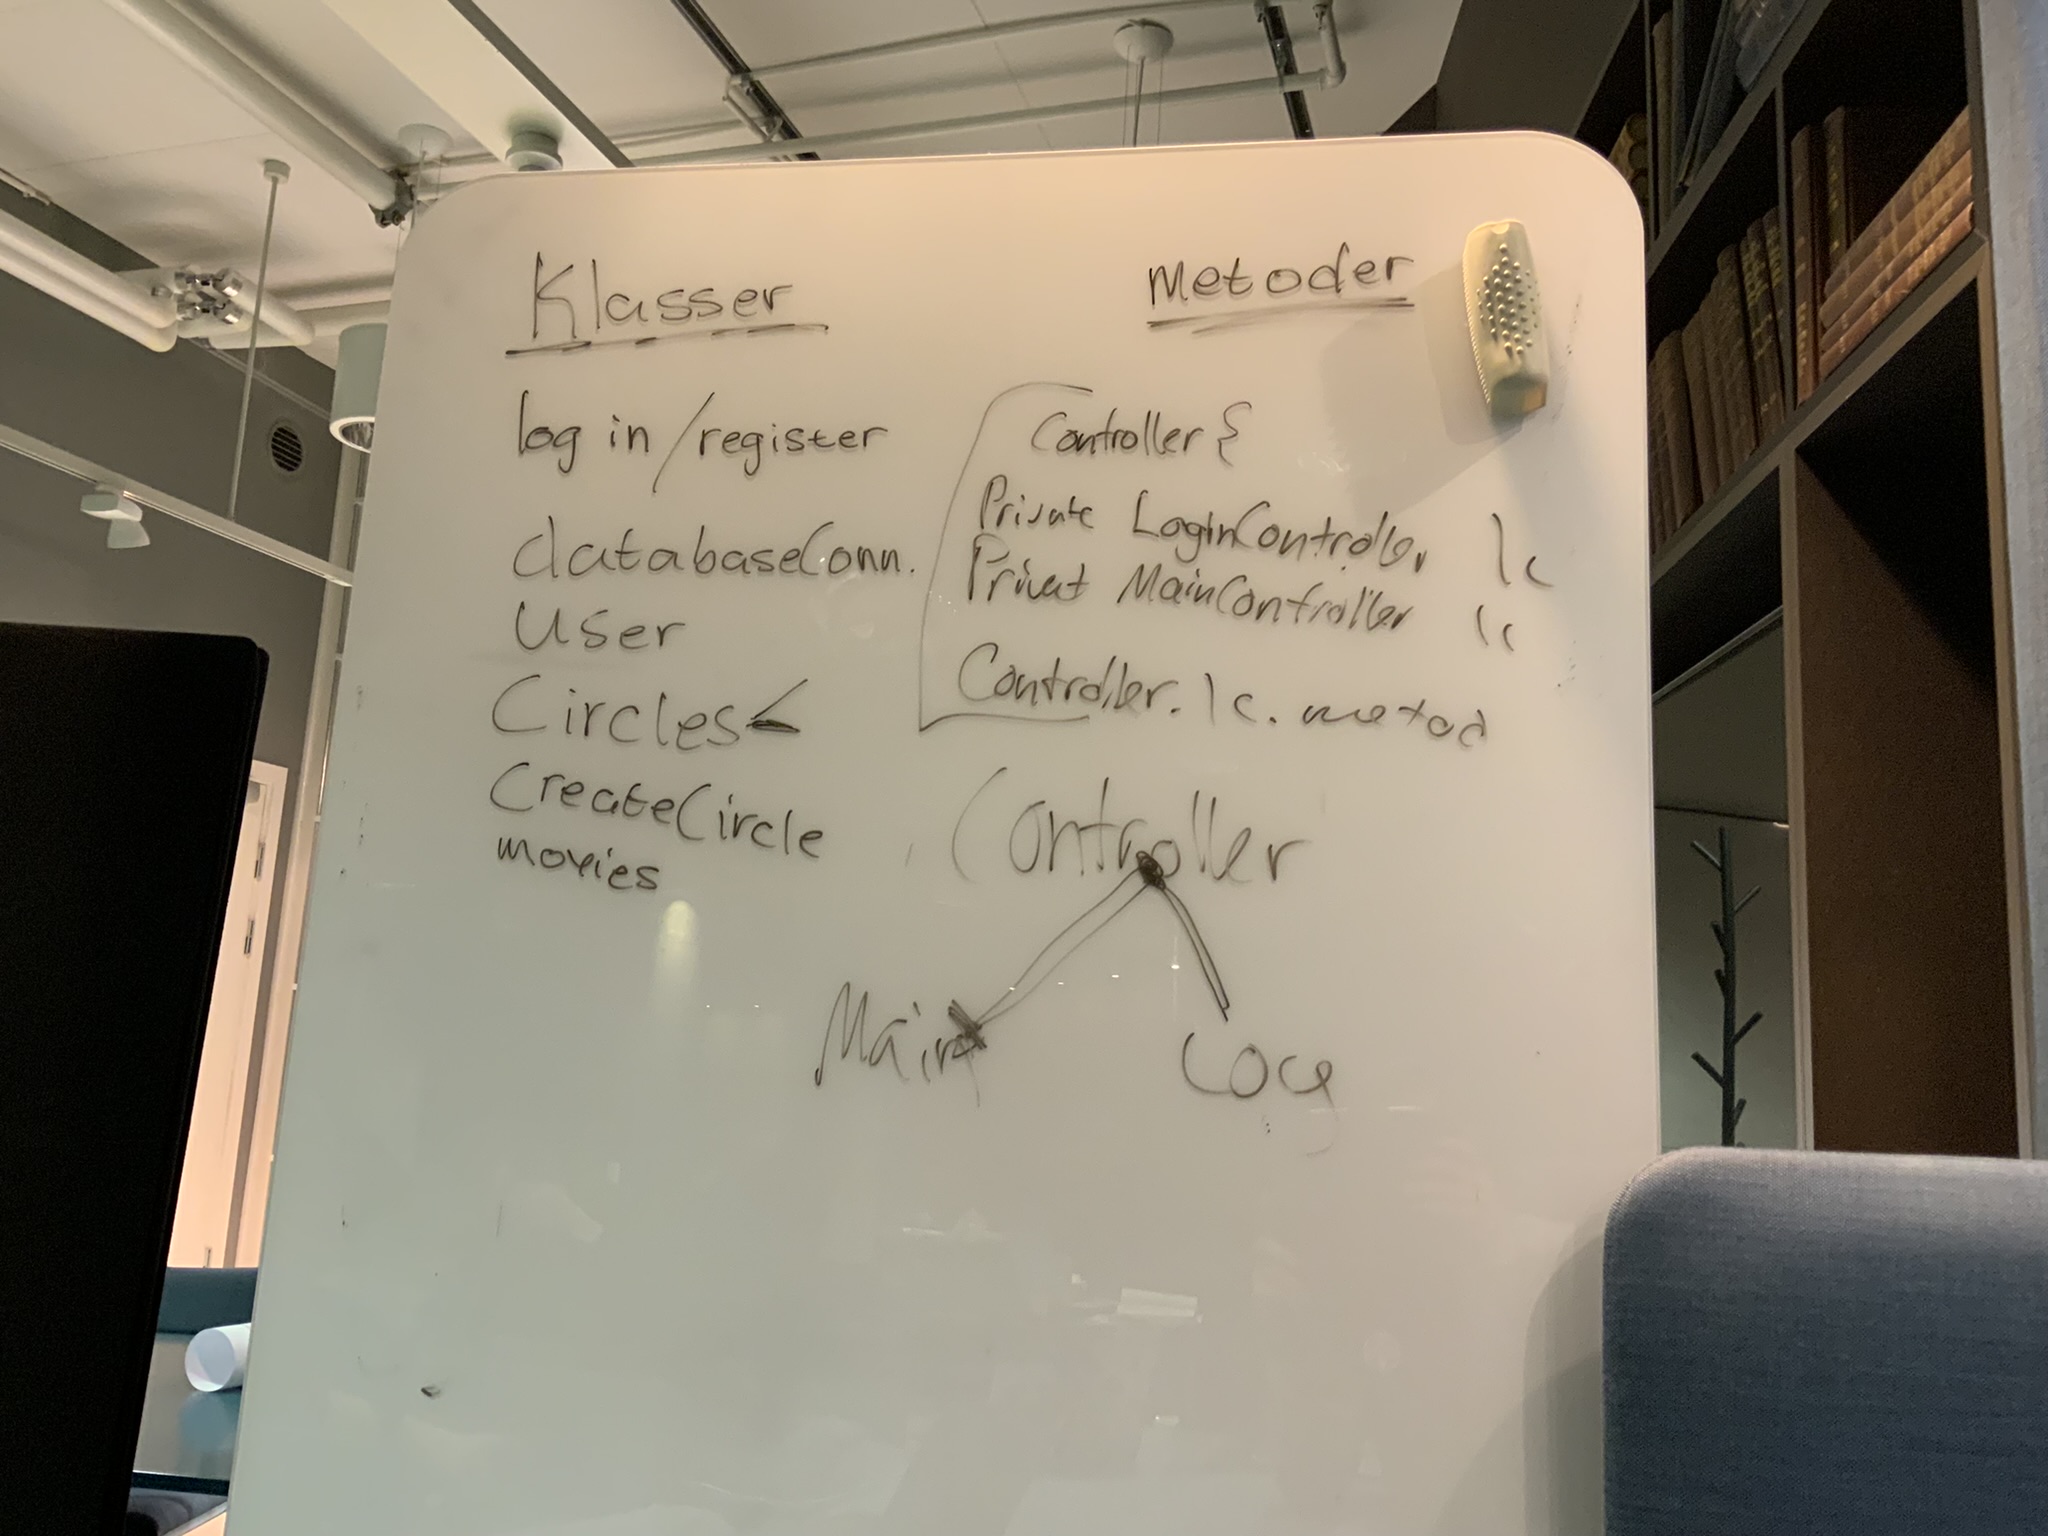 Klasser
log in/register
databaseConn.
User
Circles
CreateCircle
movies
metoder
Controller {
Private LoginController lc
Privat MainController lc
Controller.lc.metod
Controller
Main
Log